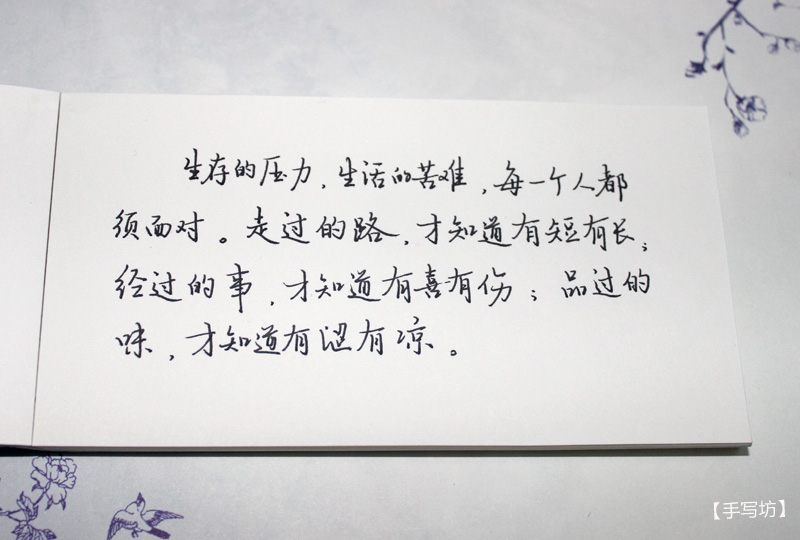 生存的压力,生活的苦难,每一个人都
须面对。走过的路,才知道有短有长;
经过的事,才知道有喜有伤;品过的
味,才知道有涩有凉。
【手写坊】